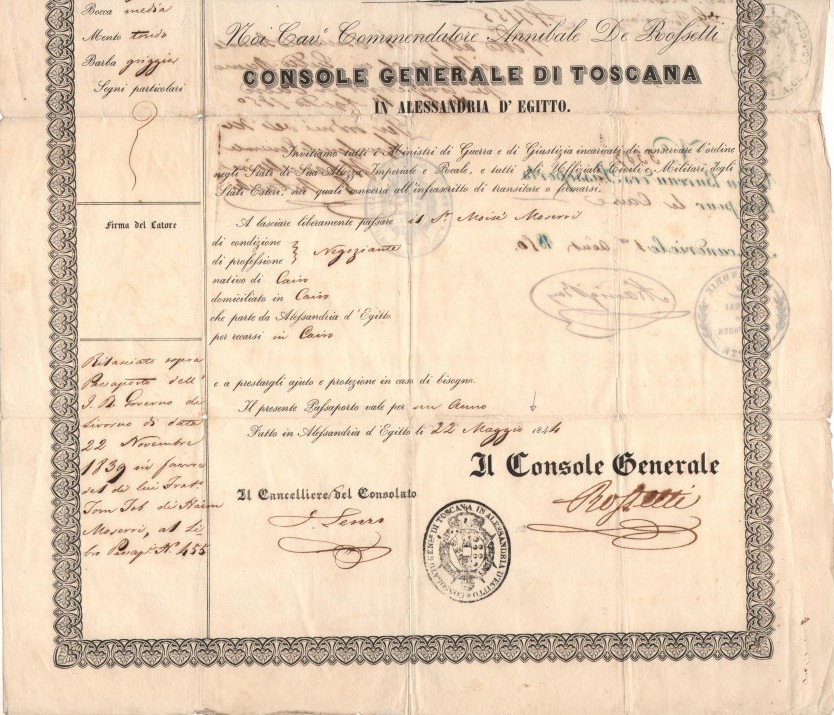 Bocca media
Mento tondo
Barba griggia
Segni particolari
Firma del Latore
Rilasciato sopra
Passaporto dell'
I. R. Governo di
Livorno di data
22 Novembre
1839 in favore
del di lui Frat.
Tom Tob di Haim
Moserri, al Li
bro Passap.ti N.º 455
Noi Cav.e Commendatore Annibale De Rossetti
CONSOLE GENERALE DI TOSCANA
IN ALESSANDRIA D'EGITTO.
Invitiamo tutti i Ministri di Guerra e di Giustizia incaricati di conservare l'ordine
negli Stati di Sua Altezza Imperiale e Reale, e tutti gli Uffiziali Civili e Militari degli
Stati Esteri, nei quali converrà all'infrascritto di transitare o fermarsi.
A lasciare liberamente passare il S.r Moisè Moserri
di condizione
di professione } Negoziante
nativo di Cairo
domiciliato in Cairo
che parte da Alessandria d'Egitto
per recarsi in Cairo
e a prestargli ajuto e protezione in caso di bisogno.
Il presente Passaporto vale per un Anno
Fatto in Alessandria d'Egitto li 22 Maggio 1844
Il Console Generale
Rossetti
Il Cancelliere del Consolato
CONSOLATO GEN.LE DI TOSCANA IN ALESSANDRIA D'EGITTO